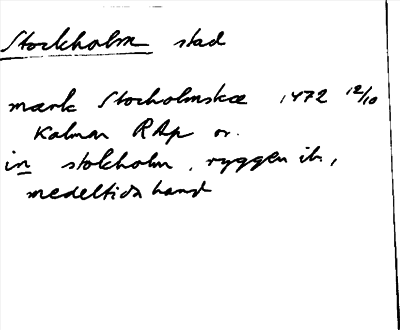 Stockholm stad
mærk Stocholmskæ 1472 12/10
Kalmar RAp or.
in stokholm, ryggen ib.,
medeltida hand